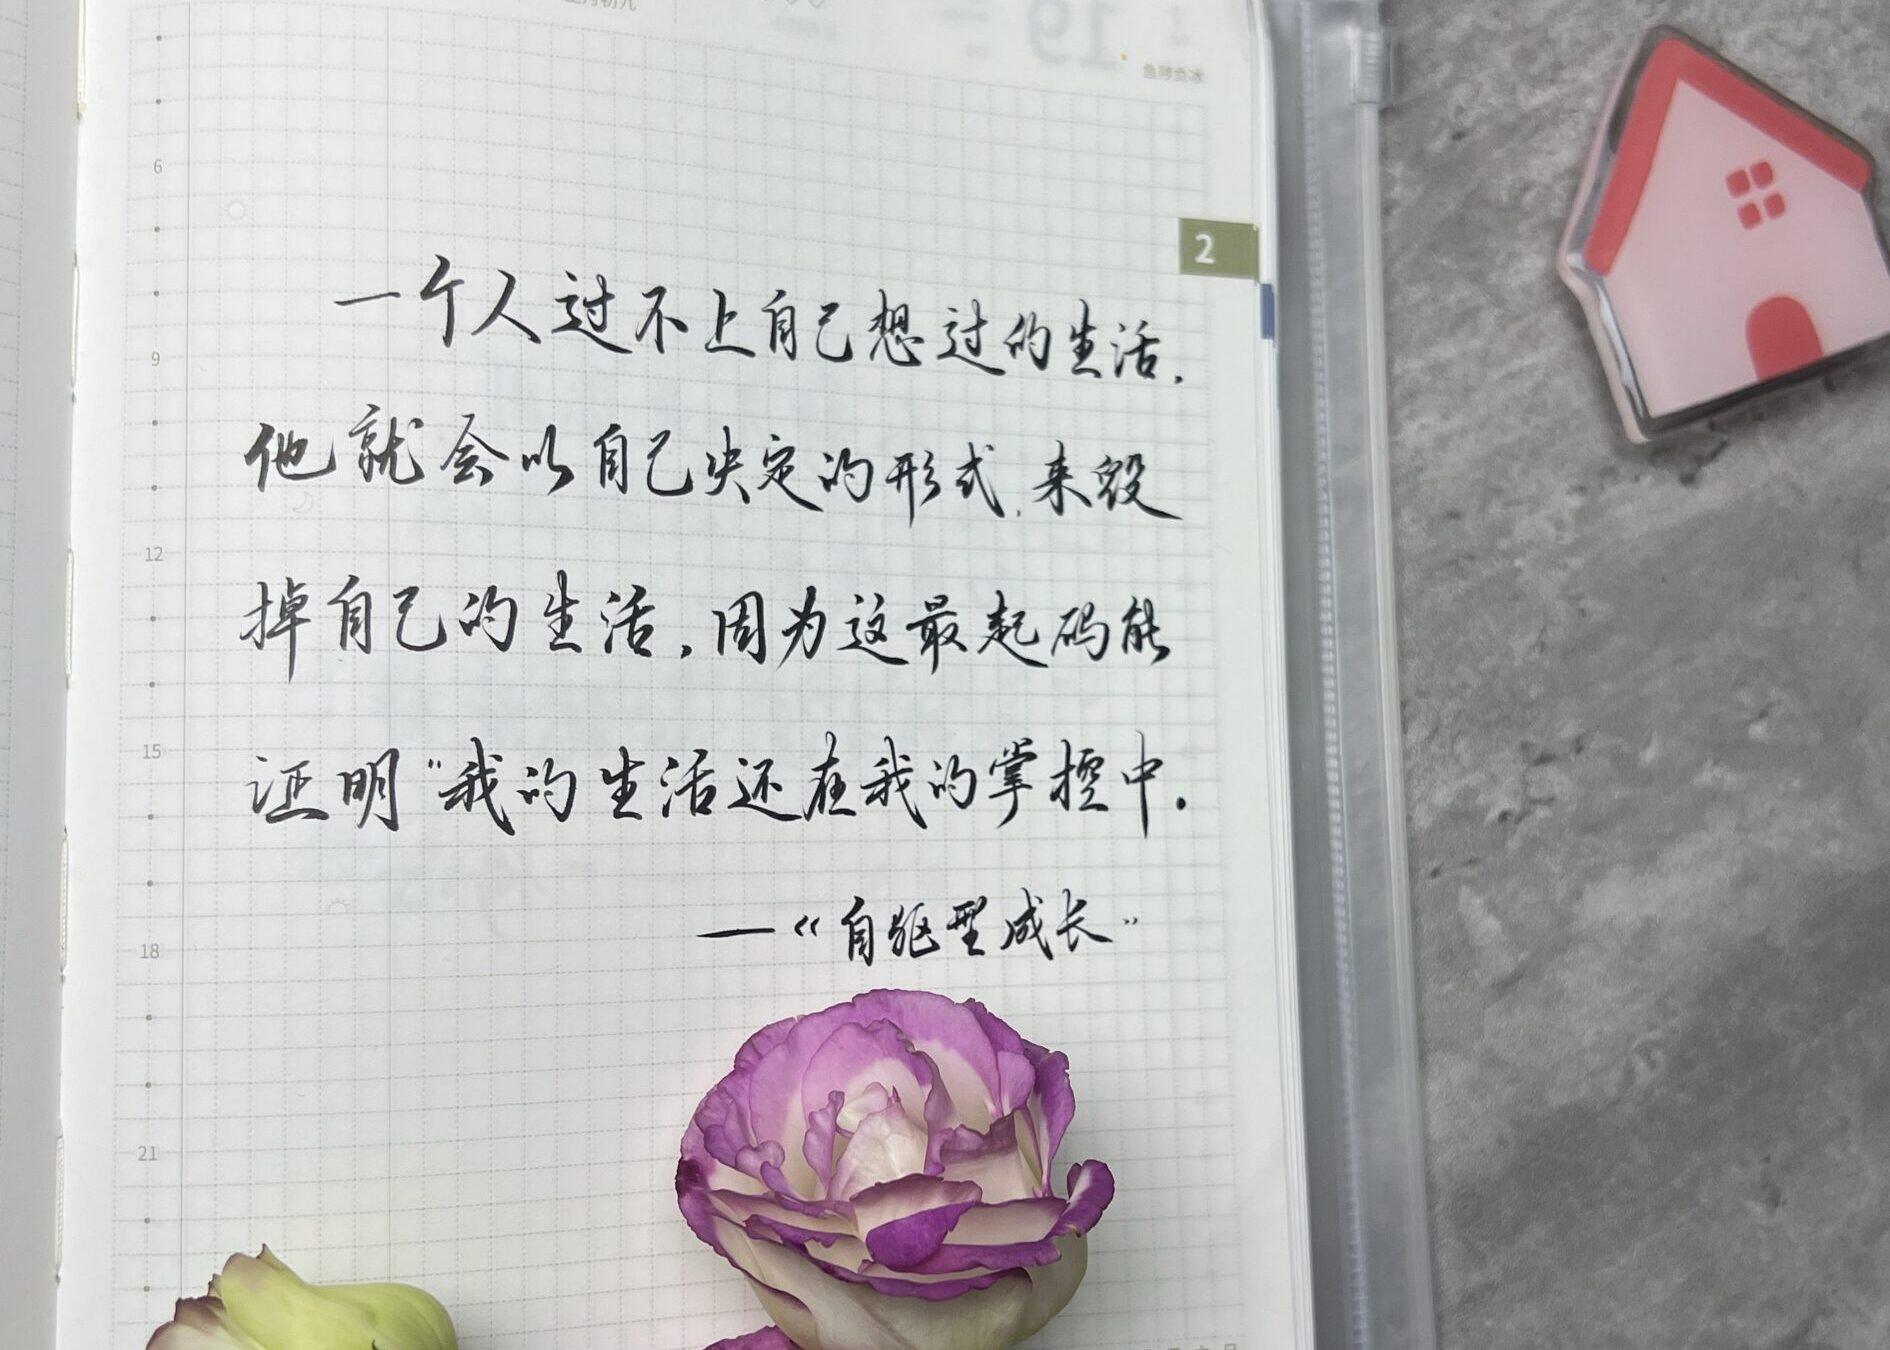 19
2
一个人过不上自己想过的生活.
他就会以自己决定的形式.来毁
掉自己的生活.因为这最起码能
证明"我的生活还在我的掌控中.
—《自驱型成长"
6
9
12
15
18
21